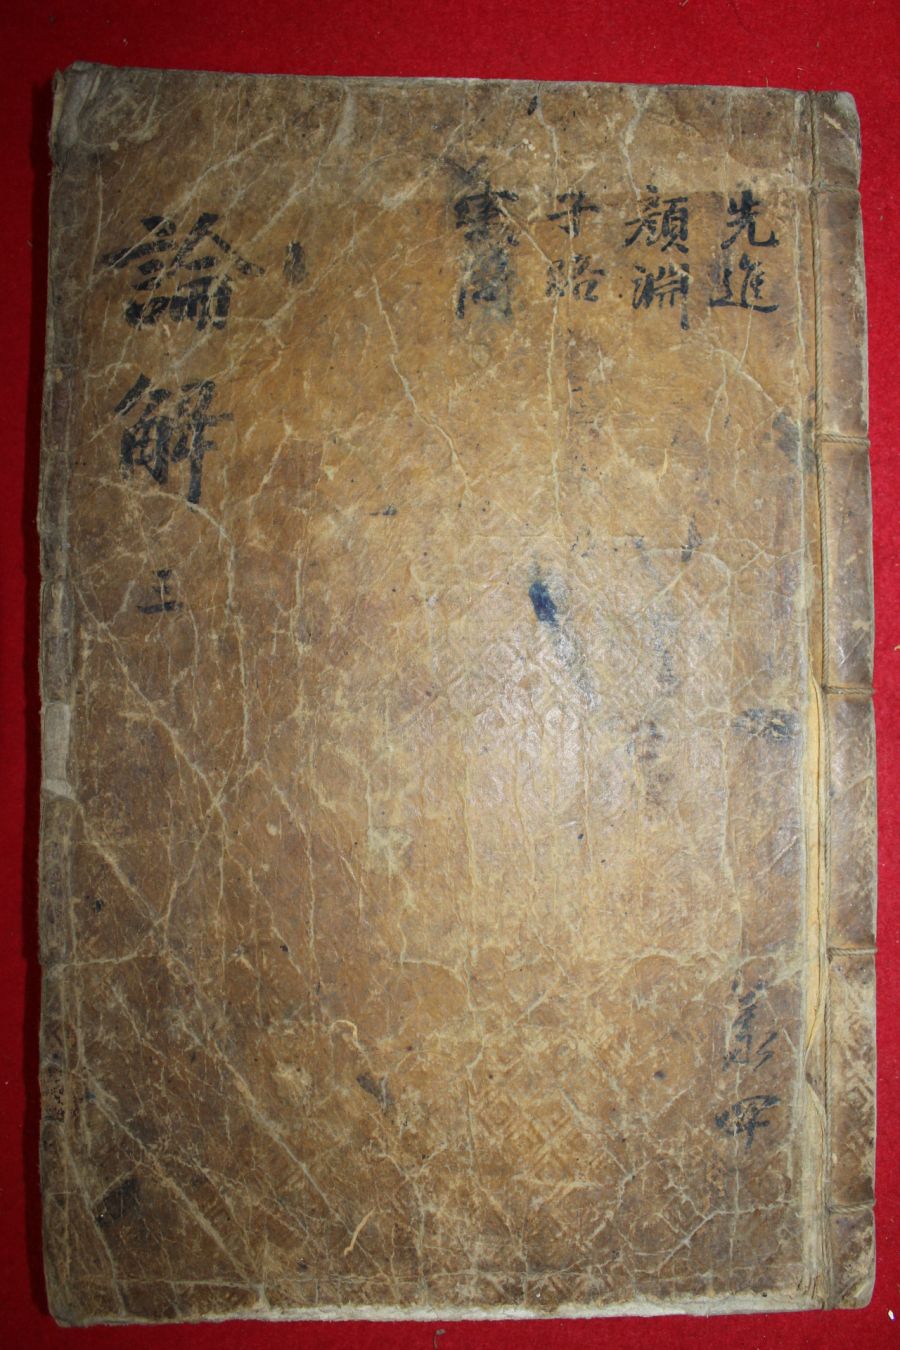 先進
顔淵
子路
憲問
論解 三